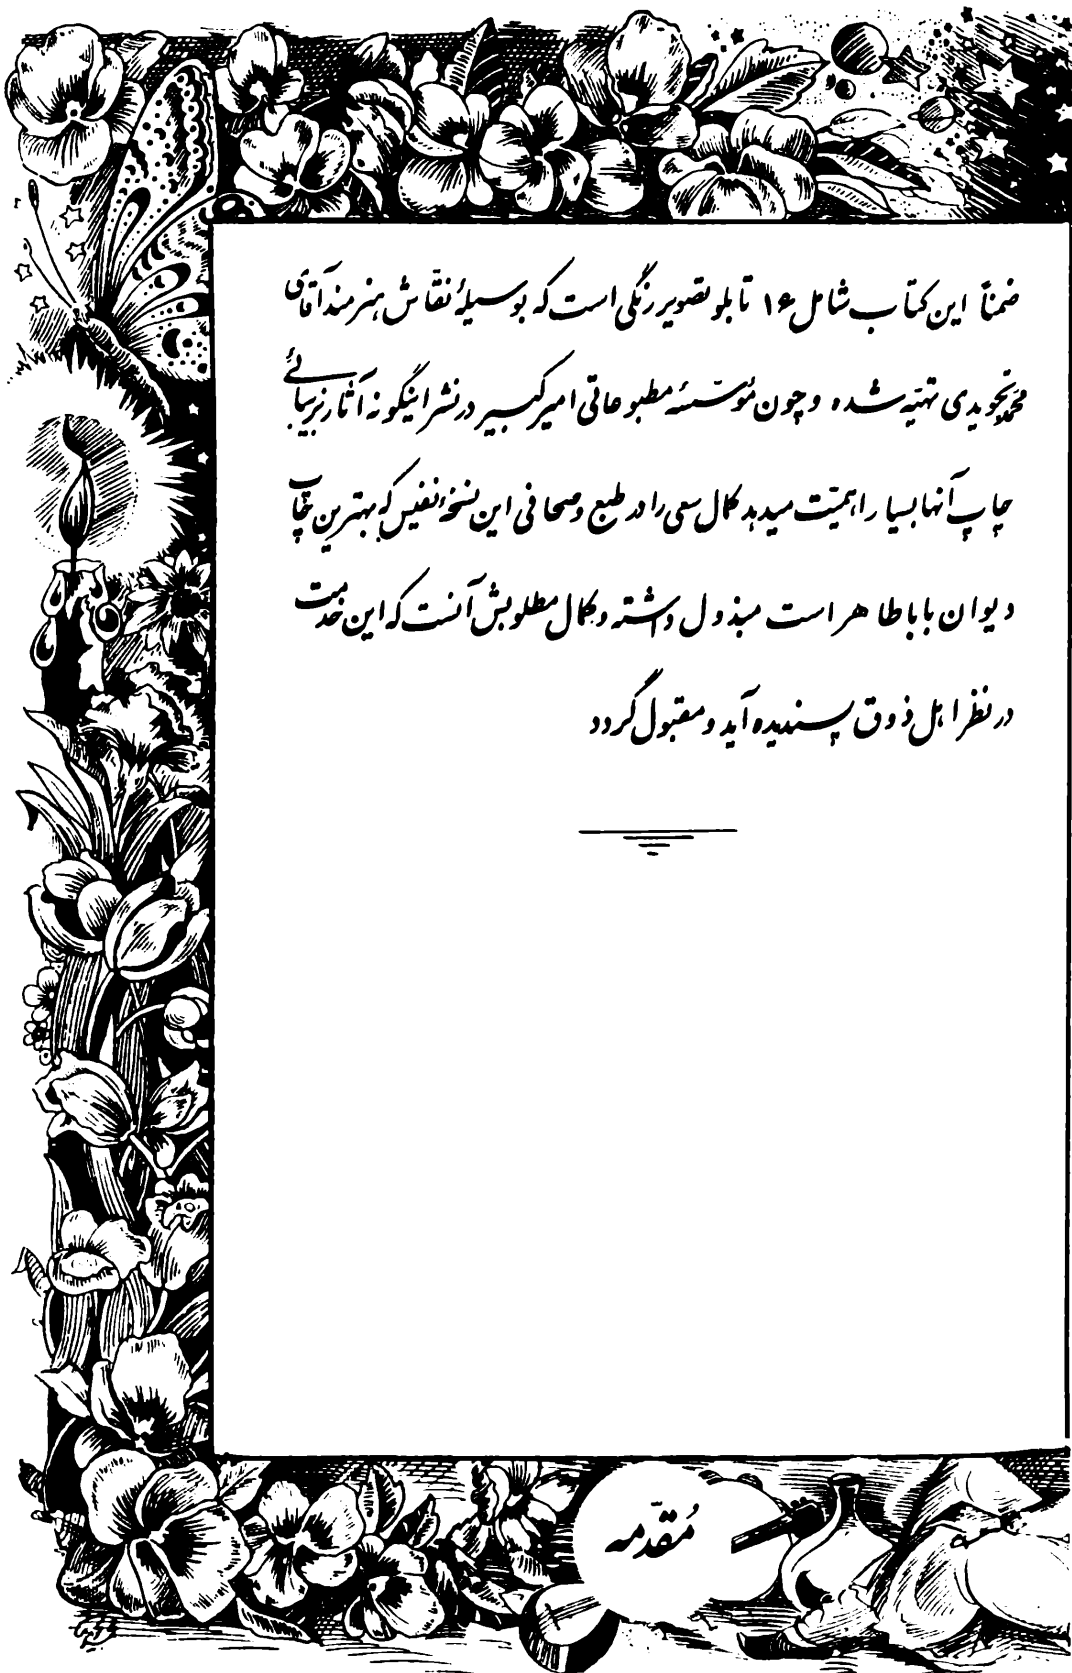 ضمناً این کتاب شامل ۱۶ تابلو تصویر رنگی است که بوسیلهٔ نقّاش هنرمند آقای
محمد تجویدی تهیّه شده و چون مؤسّسهٔ مطبوعاتی امیرکبیر در نشر اینگونه آثار بزیبائی
چاپ آنها بسیار اهمیّت میدهد کمال سعی را در طبع و صحافی این نسخهٔ نفیس که بهترین چاپ
دیوان باباطاهر است مبذول داشته و کمال مطلوبش آنست که این خدمت
در نظر اهل ذوق پسندیده آید و مقبول گردد
مُقدّمه